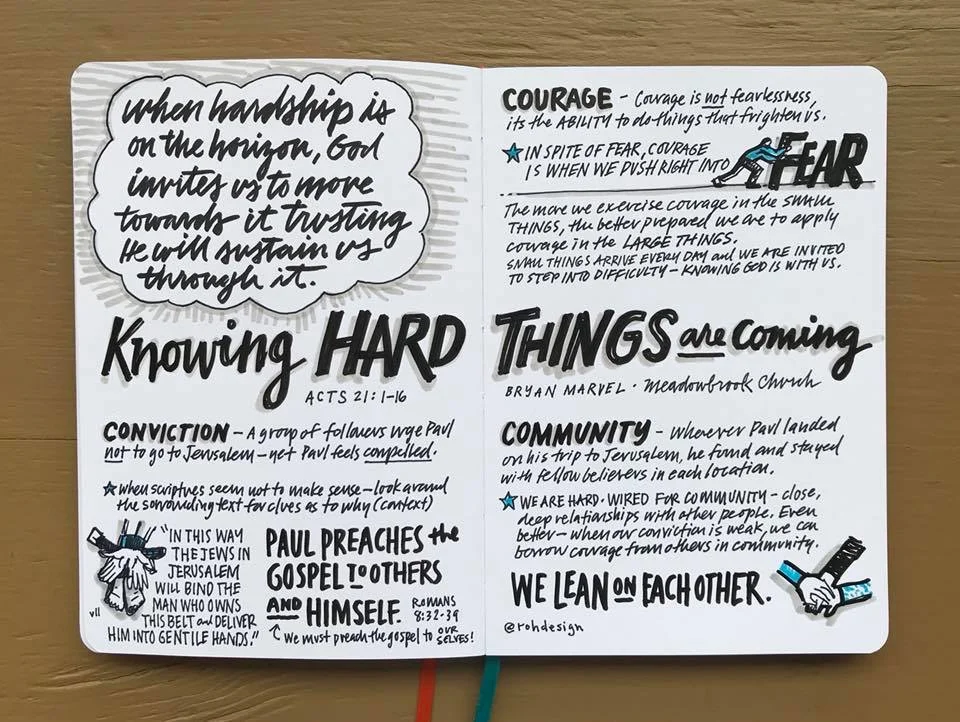 when hardship is
on the horizon, God
invites us to move
towards it trusting
He will sustain us
through it.
Knowing HARD THINGS are coming
ACTS 21:1-16
BRYAN MARVEL · Meadowbrook Church
CONVICTION - A group of followers urge Paul
not to go to Jerusalem - yet Paul feels compelled.
★ when scriptures seem not to make sense - look around
the surrounding text for clues as to why (context)
"IN THIS WAY
THE JEWS IN
JERUSALEM
WILL BIND THE
MAN WHO OWNS
THIS BELT and DELIVER
HIM INTO GENTILE HANDS."
v11
PAUL PREACHES the
GOSPEL TO OTHERS
AND HIMSELF.
ROMANS
8:32-39
we must preach the gospel to OURSELVES!
COURAGE - Courage is not fearlessness,
its the ABILITY to do things that frighten us.
★ IN SPITE OF FEAR, COURAGE
IS WHEN WE PUSH RIGHT INTO
FEAR
The more we exercise courage in the SMALL
THINGS, the better prepared we are to apply
courage in the LARGE THINGS.
SMALL THINGS ARRIVE EVERY DAY and WE ARE INVITED
TO STEP INTO DIFFICULTY - KNOWING GOD IS WITH US.
COMMUNITY - Wherever Paul landed
on his trip to Jerusalem, he found and stayed
with fellow believers in each location.
★ WE ARE HARD-WIRED FOR COMMUNITY - close,
deep relationships with other people. Even
better - when our conviction is weak, we can
borrow courage from others in community.
WE LEAN ON EACH OTHER.
@rohdesign